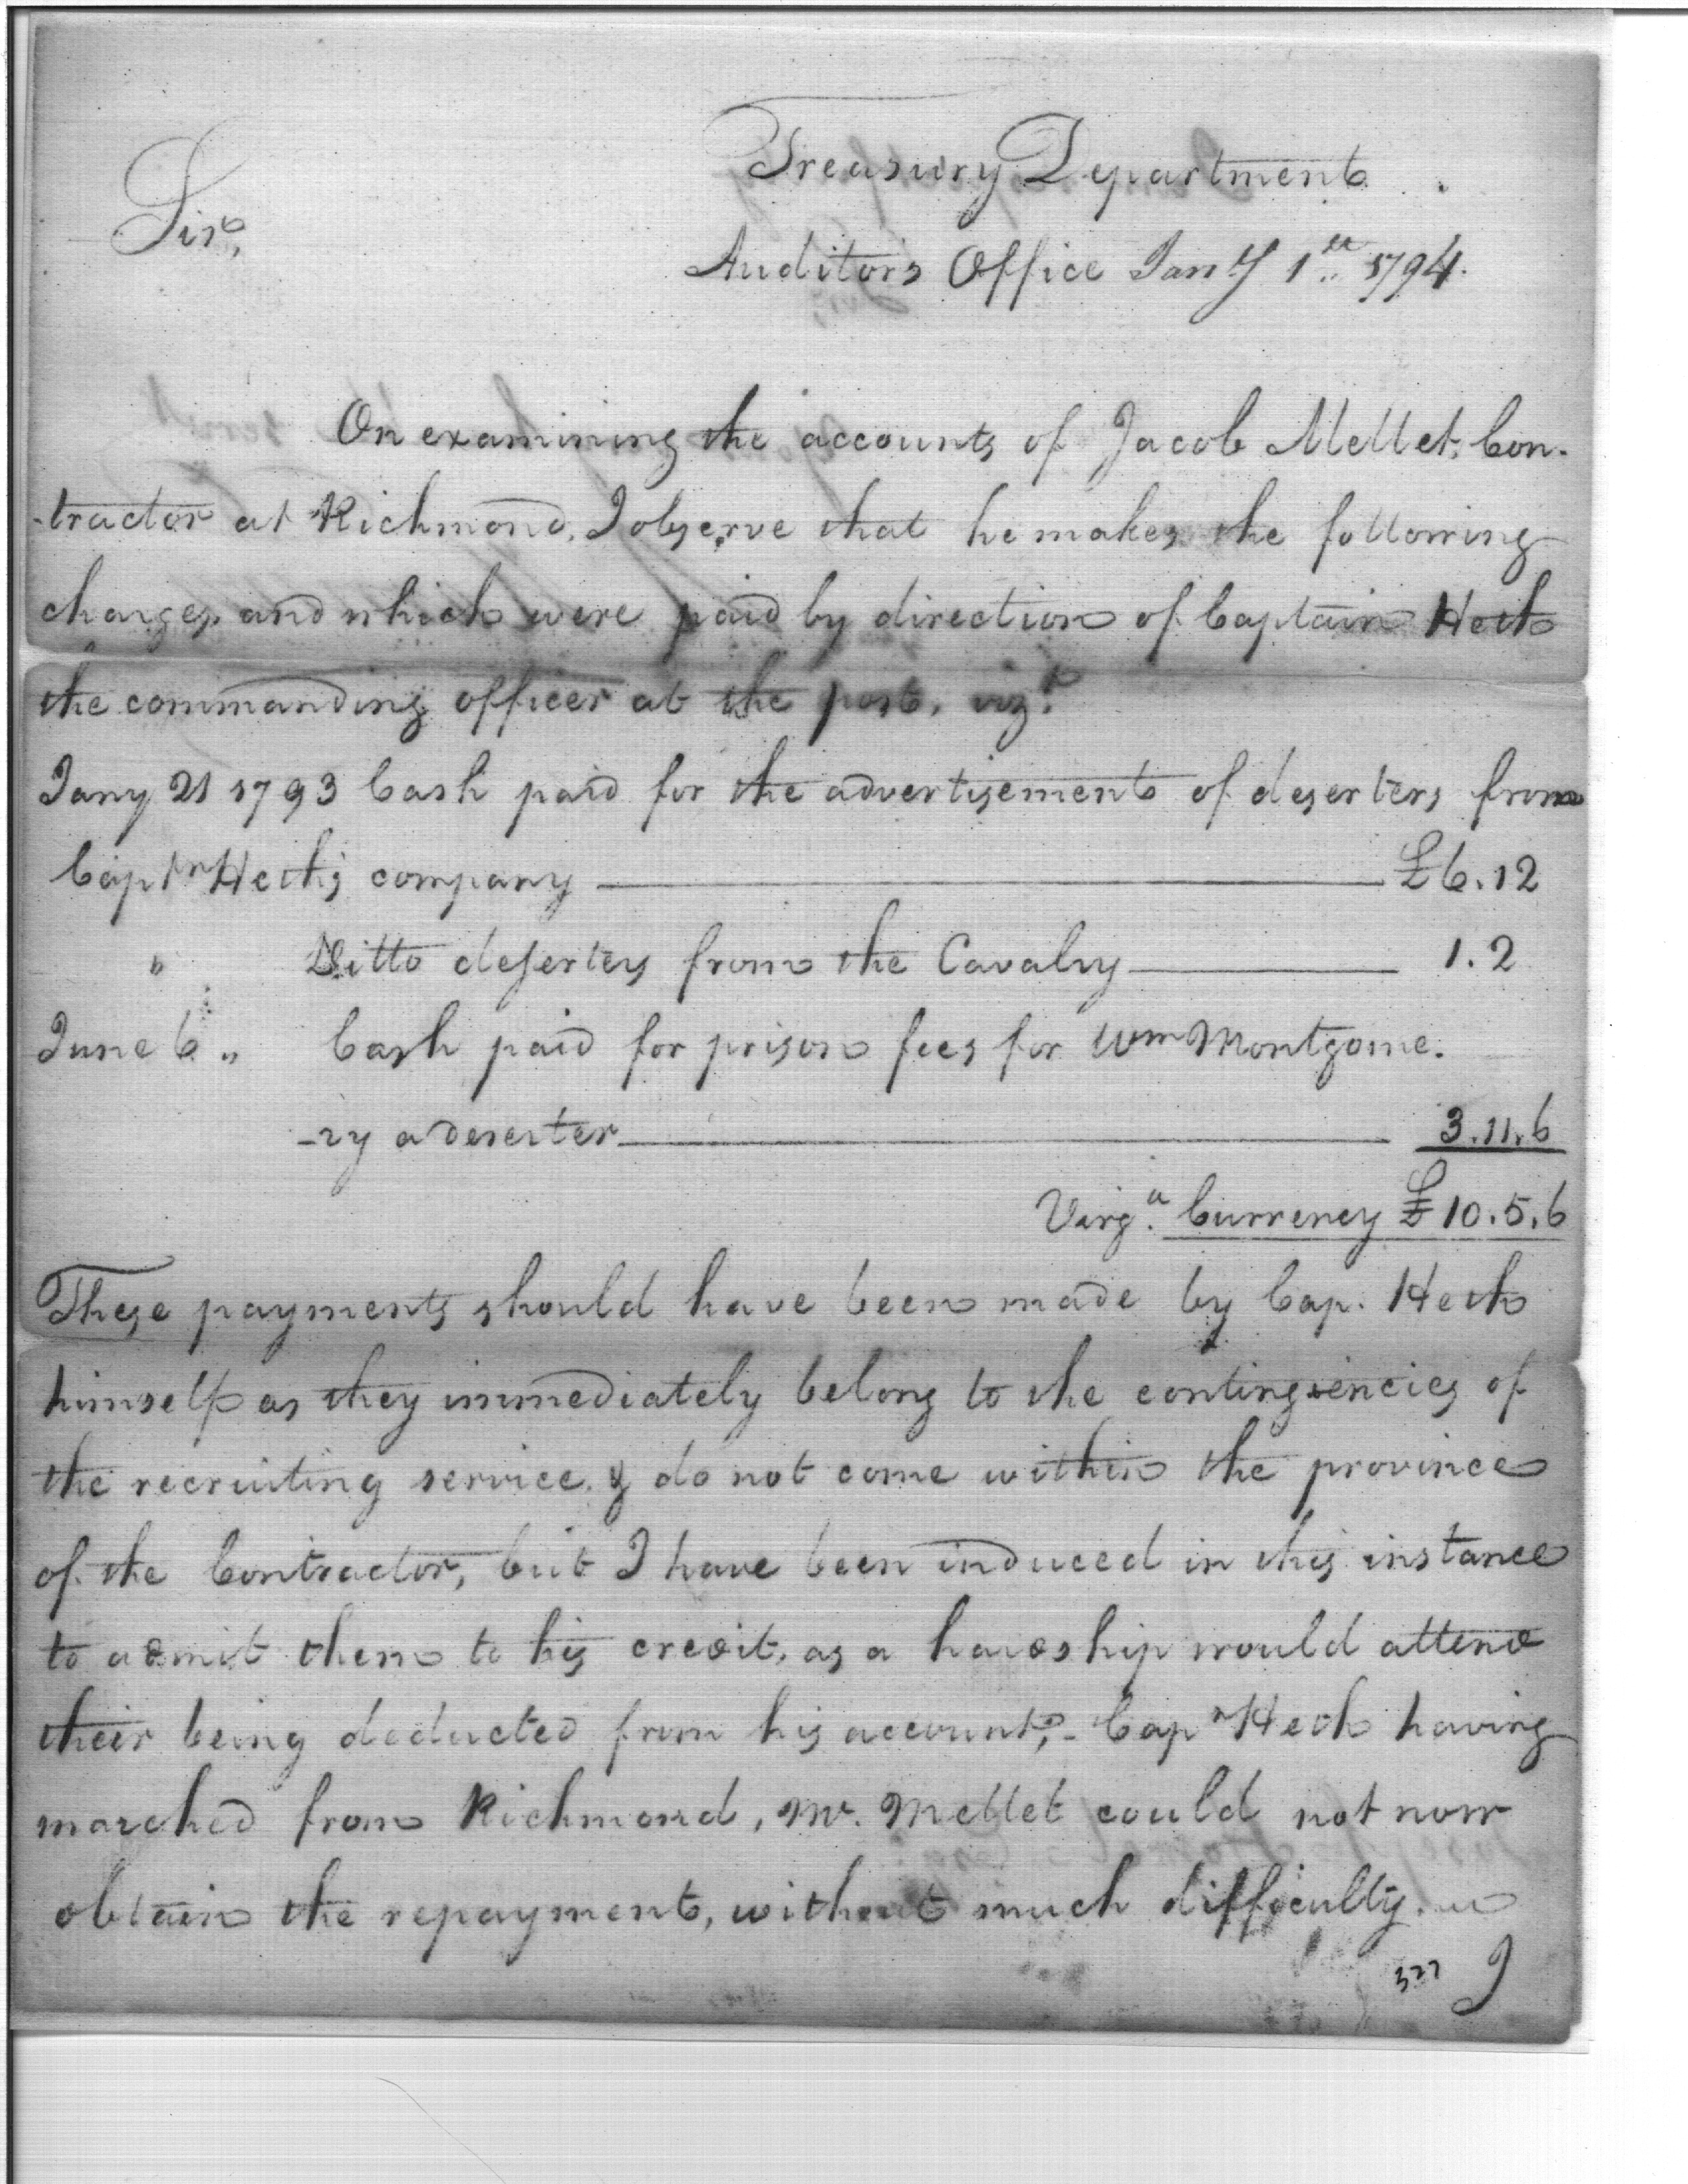 Treasury Department
Sir,
Auditors Office Jany 1st 1794.
On examining the accounts of Jacob Mettet, Con-
-tractor at Richmond, I observe that he makes the following
charges, and which were paid by direction of Captain Heth
the commanding officer at the post, vizt.
Jany 21 1793 Cash paid for the advertisements of deserters from
Captn Heth's company £6.12
" Ditto deserters from the Cavalry 1.2
June 6 " Cash paid for prison fees for Wm Montgome-
-ry a deserter 3.11.6
Virga. Currency £10.5.6
These payments should have been made by Cap. Heth
himself as they immediately belong to the contingencies of
the recruiting service, & do not come within the province
of the Contractor, but I have been induced in this instance
to admit them to his credit, as a hardship would attend
their being deducted from his account;- Capn Heth having
marched from Richmond, Mr. Mettet could not now
obtain the repayment, without much difficulty.
377 I